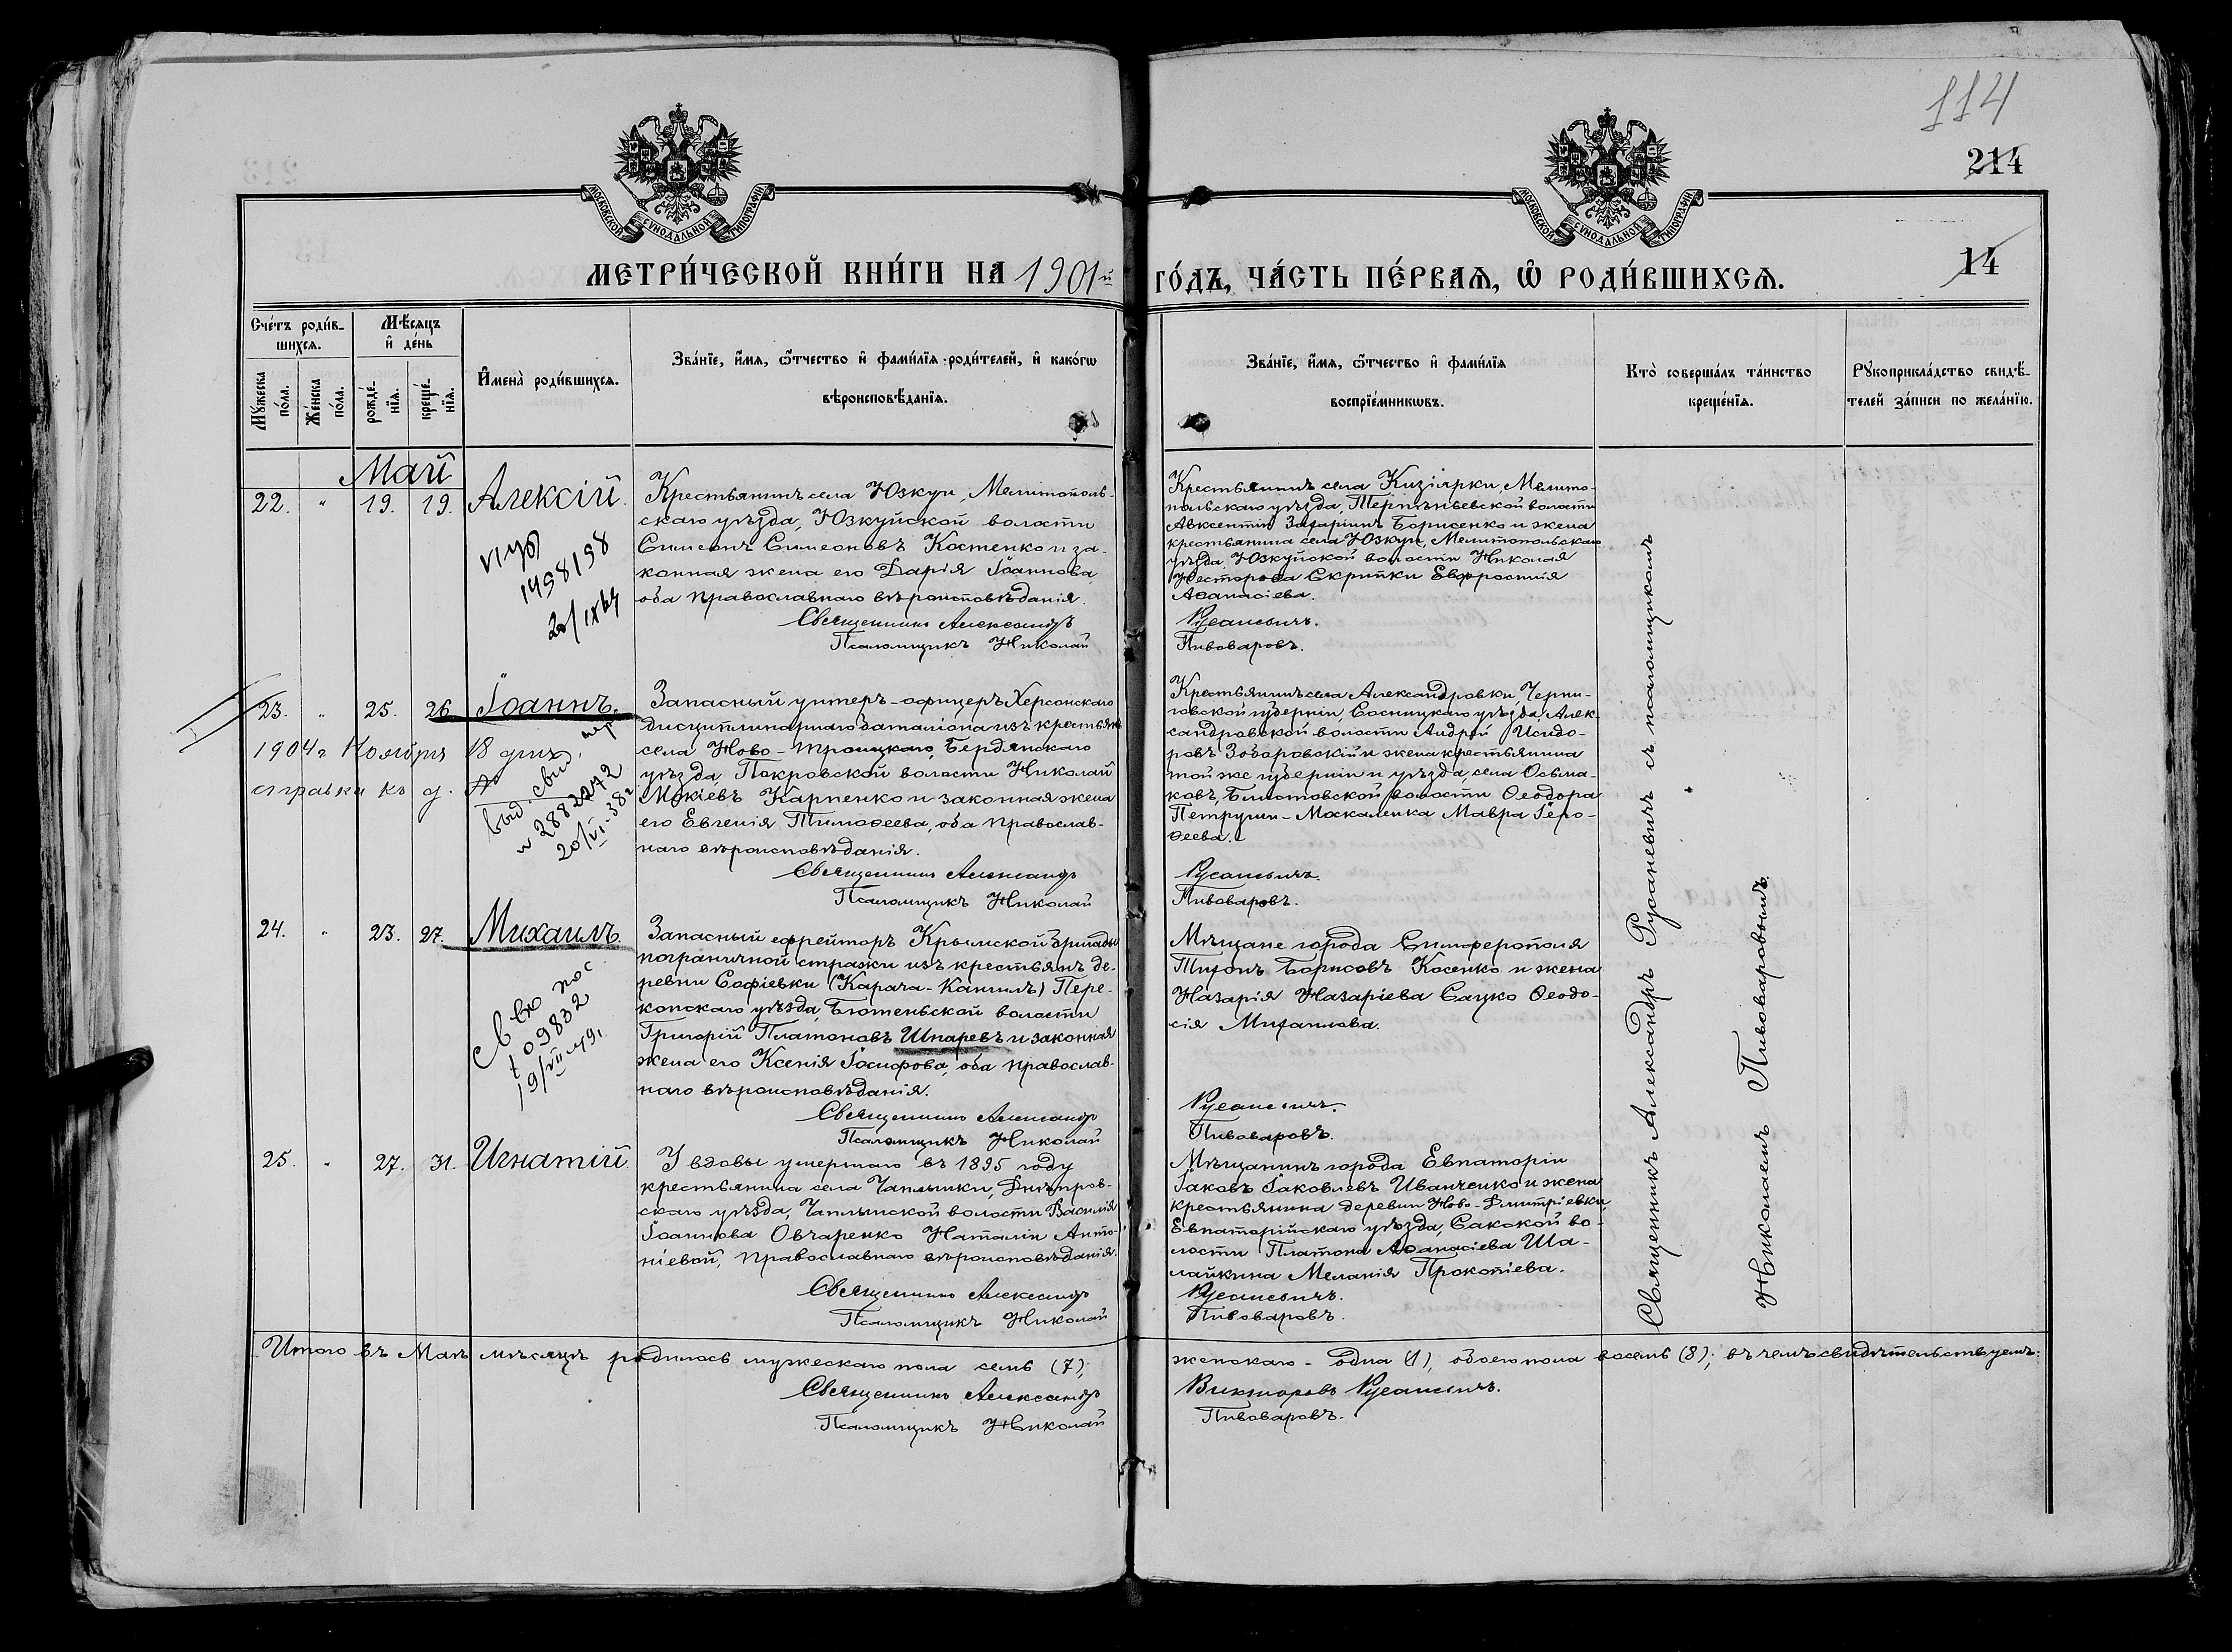 114
214
14
МОСКОВСКОЙ СѴНОДАЛЬНОЙ ТИПОГРАФІИ
МОСКОВСКОЙ СѴНОДАЛЬНОЙ ТИПОГРАФІИ
МЕТРИ́ЧЕСКОЙ КНИ́ГИ НА 1901й ГО́ДЪ, ЧА́СТЬ ПЕ́РВАѦ, Ѡ҆ РОДИ́ВШИХСѦ.
Сче́тъ роди́в-
шихсѧ.
Мꙋ́жеска
по́ла.
Же́нска
по́ла.
Мѣ́сѧцъ
и҆ де́нь
рожде́-
нїѧ.
креще́-
нїѧ.
И҆мена̀ роди́вшихсѧ.
Зва́нїе, и҆́мѧ, ѻ҆́тчество и҆ фами́лїѧ роди́телей, и҆ како́гѡ
вѣроисповѣ́данїѧ.
Зва́нїе, и҆́мѧ, ѻ҆́тчество и҆ фами́лїѧ
воспрїе́мникѡвъ.
Кто̀ соверша́лъ та́инство
креще́нїѧ.
Рꙋкоприкла́дство свидѣ́-
телей за́писи по жела́нїю.
Май
22. " 19. 19. Алексій.
Крестьянинъ села Юзкуи, Мелитополь-
скаго уѣзда, Юзкуйской волости
Симеонъ Симеоновъ Костенко и за-
конная жена его Дарія Іоаннова
оба православнаго вѣроисповѣданія.
Священникъ Александръ
Псаломщикъ Николай
Крестьянинъ села Кизіярки, Мелито-
польскаго уѣзда, Терпѣньевской волости
Авксентій Захаріинъ Борисенко и жена
крестьянина села Юзкуи, Мелитопольскаго
уѣзда Юзкуйской волости Николая
Несторова Скрипки Евфросинія
Аѳанасіева.
Русаневичъ.
Пивоваровъ.
1498/198
23. " 25. 26 Іоаннъ.
1904г. Ноября 18 дня
справка къ д. №
выд. свид.
2882272
20/VI-382
Запасный унтеръ-офицеръ Херсонскаго
дисциплинарнаго баталіона изъ крестьянъ
села Ново-Троицкаго, Бердянскаго
уѣзда, Покровской волости Николай
Мокіевъ Карпенко и законная жена
его Евгенія Тимоѳеева, оба православ-
наго вѣроисповѣданія.
Священникъ Александръ
Псаломщикъ Николай
Крестьянинъ села Александровки, Черни-
говской губерніи, Сосницкаго уѣзда, Алек-
сандровской волости Андрей Исидо-
ровъ Зоваровскій и жена крестьянина
той же губерніи и уѣзда, села Осьма-
ковъ, Блистовской волости Ѳеодора
Петруши-Москаленка Мавра Іеро-
ѳеева.
Русаневичъ.
Пивоваровъ.
24. " 23. 27. Михаилъ
09832
19/VII-49.
Запасный ефрейторъ Крымской бригады
пограничной стражи изъ крестьянъ де-
ревни Софіевки (Карача-Кангилъ) Пере-
копскаго уѣзда, Бютеньской волости
Григорій Платоновъ Шпаревъ и законная
жена его Ксенія Іосифова, оба православ-
наго вѣроисповѣданія.
Священникъ Александръ
Псаломщикъ Николай
Мѣщане города Симферополя
Тихонъ Борисовъ Косенко и жена
Назарія Назаріева Сацко Ѳеодо-
сія Михаилова.
Русаневичъ.
Пивоваровъ.
25. " 27. 31. Игнатій.
У вдовы умершаго въ 1895 году
крестьянина села Чаплинки, Днѣпров-
скаго уѣзда, Чаплинской волости Василія
Іоаннова Овчаренко Наталіи Анто-
ніевой, православнаго вѣроисповѣданія.
Священникъ Александръ
Псаломщикъ Николай
Мѣщанинъ города Евпаторіи
Іаковъ Іаковлевъ Иванченко и жена
крестьянина деревни Ново-Дмитріевки,
Евпаторійскаго уѣзда, Сакской во-
лости Платона Аѳанасіева Ша-
лайкина Меланія Прокопіева.
Русаневичъ.
Пивоваровъ.
Священникъ Александръ Русаневичъ съ псаломщикомъ
Николаемъ Пивоваровымъ.
Итого въ Маѣ мѣсяцѣ родилось мужескаго пола семь (7), женскаго - одна (1), обоего пола восемь (8); въ чемъ свидѣтельствуемъ:
Священникъ Александръ Викторовъ Русаневичъ.
Псаломщикъ Николай Пивоваровъ.